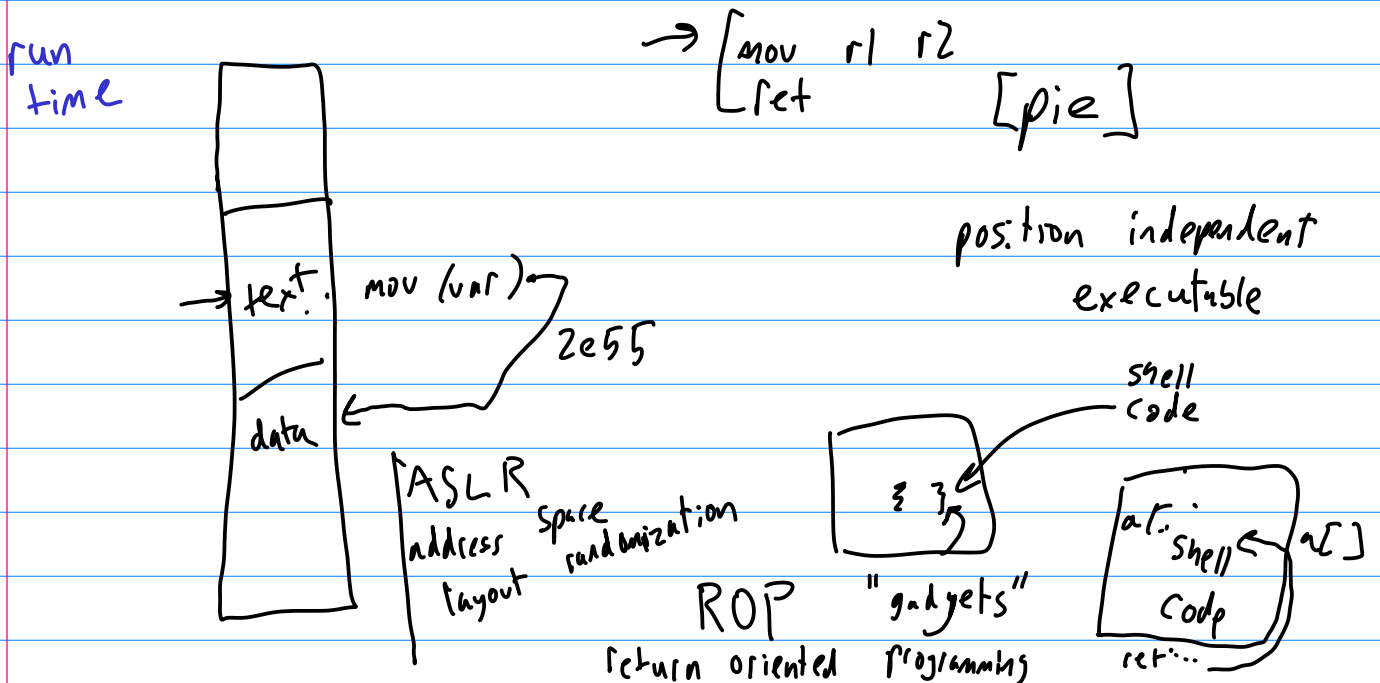 run
time
→ [mov r1 r2
ret
[pie]
position independent
executable
text
mov (var)
2e55
data
shell
code
{ }
ASLR
address space
layout randomization
ar..
shell
code
a[]
ret....
ROP
"gadgets"
return oriented programming